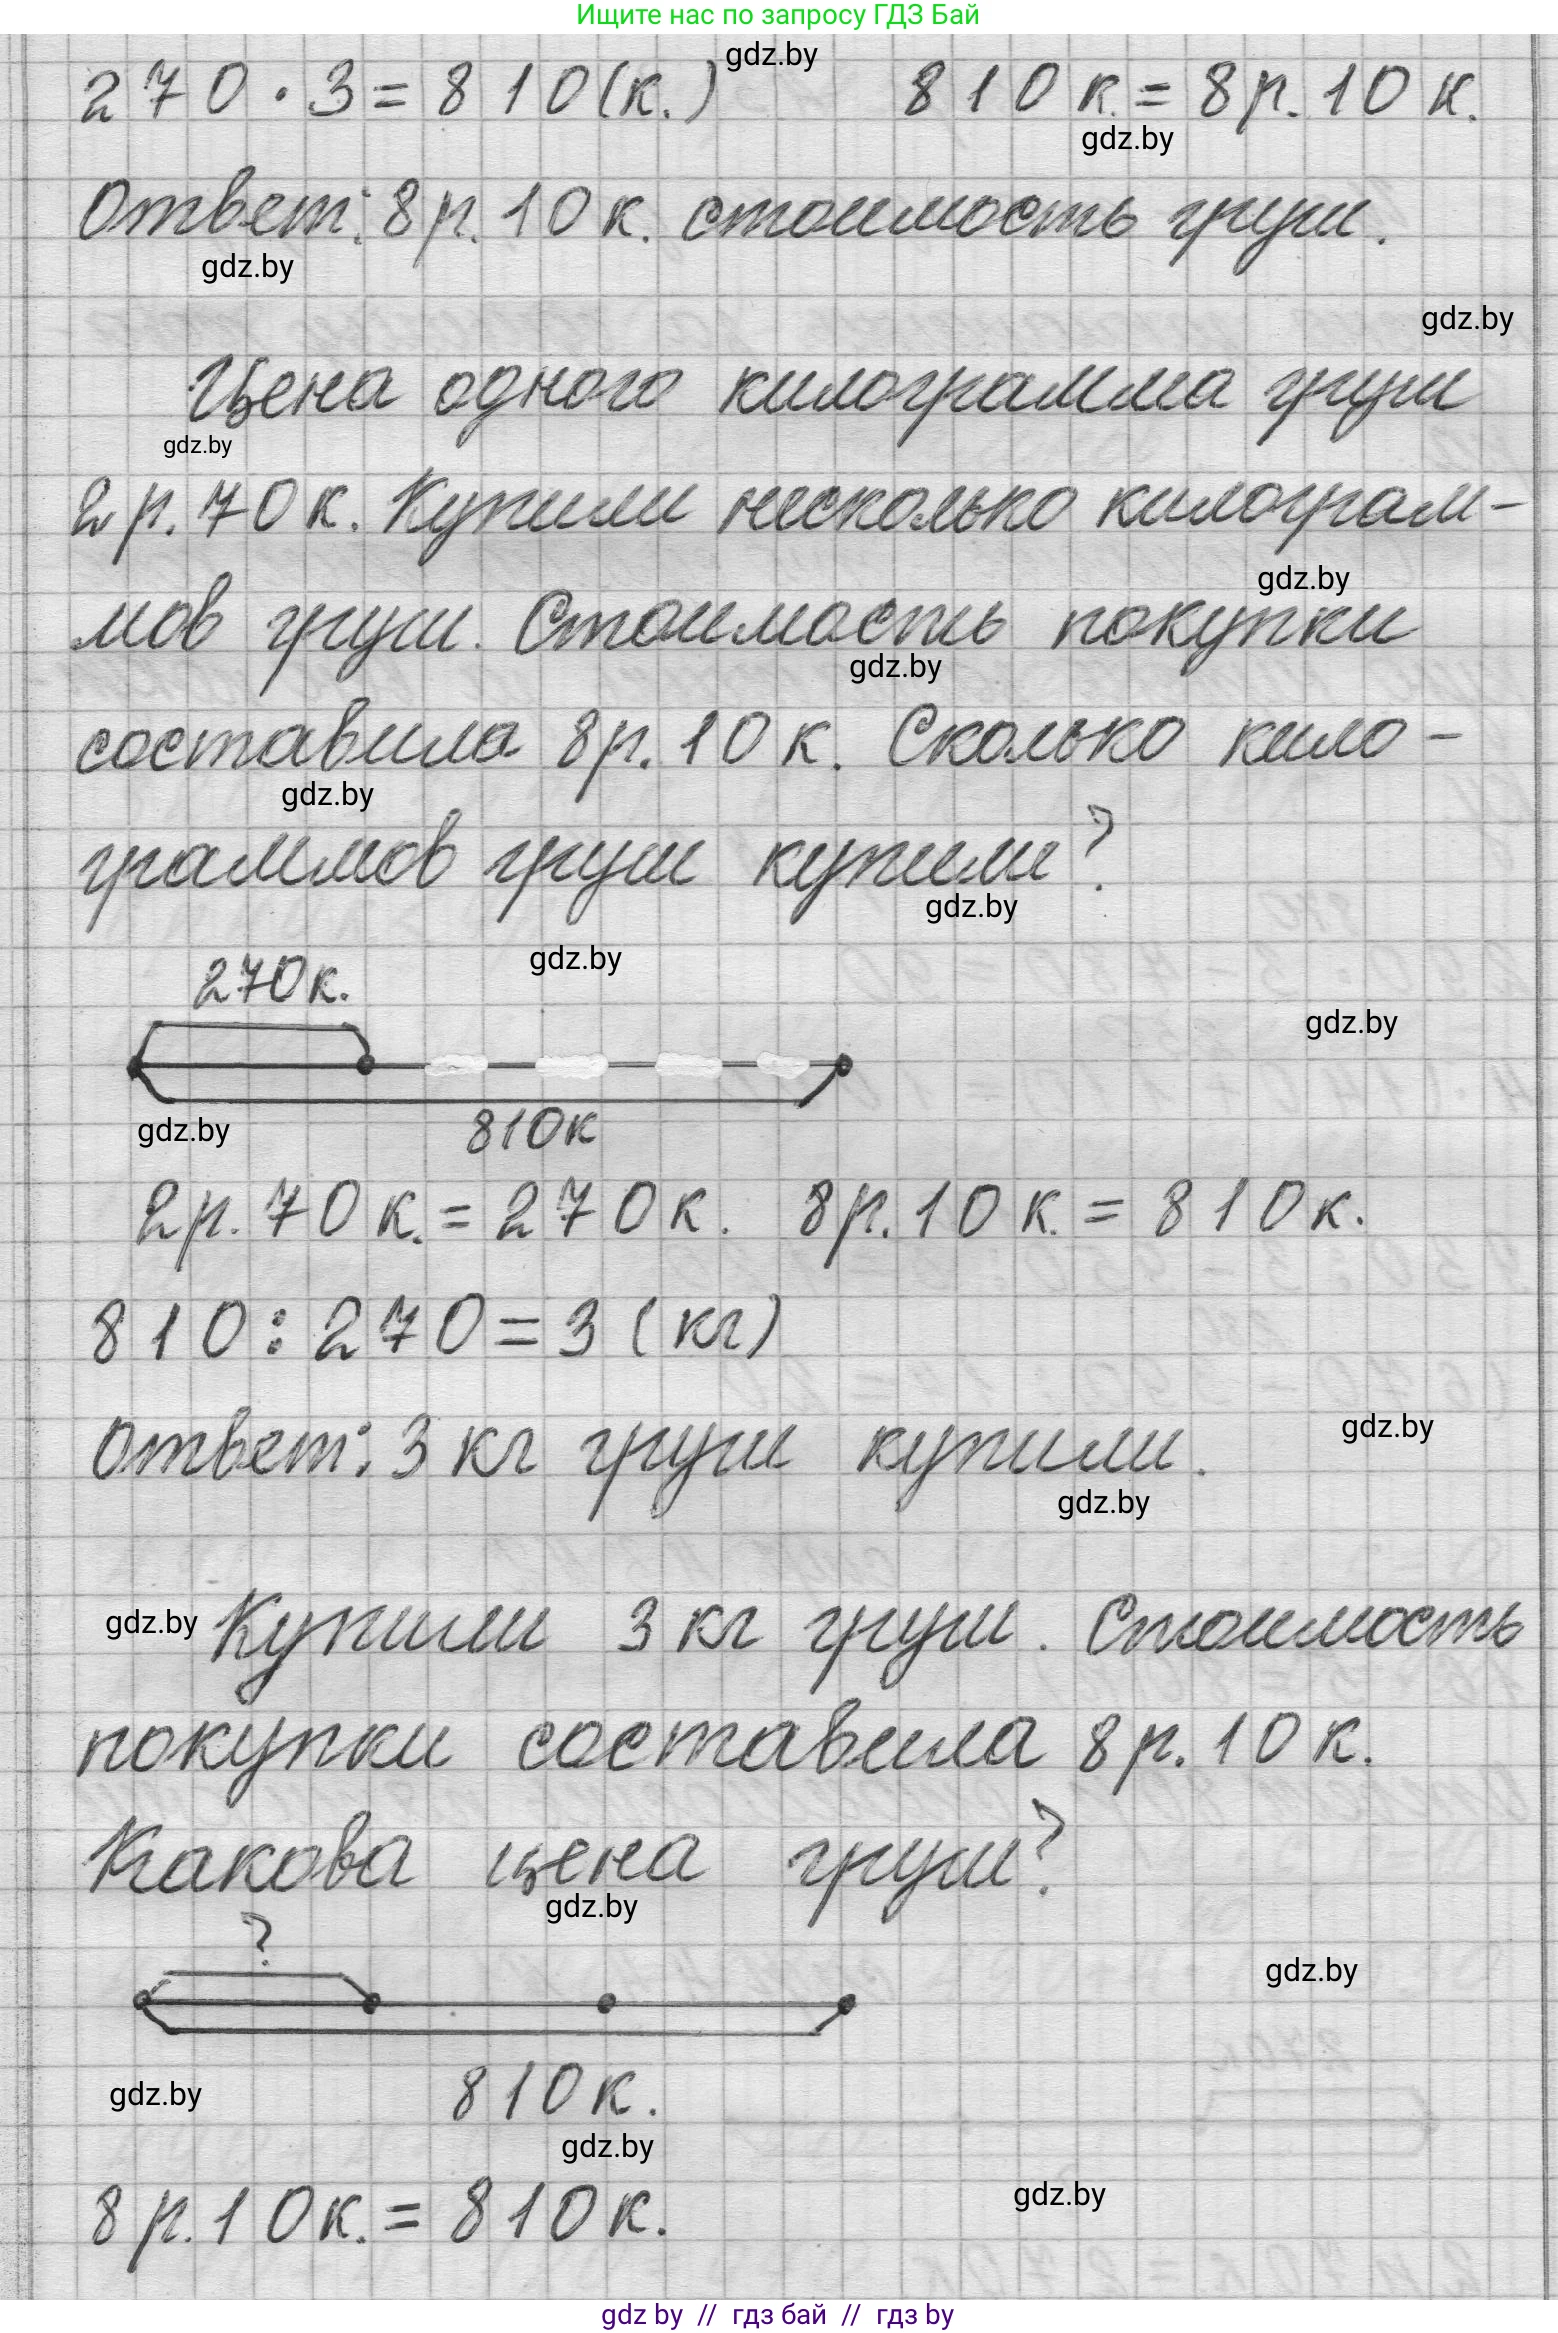 Ищите нас по запросу ГДЗ Бай
gdz.by
270 · 3 = 810 (к.) 810 к. = 8 р. 10 к.
gdz.by
Ответ: 8 р. 10 к. стоимость груш.
gdz.by
gdz.by
Цена одного килограмма груш
gdz.by
2 р. 70 к. Купили несколько килограм-
gdz.by
мов груш. Стоимость покупки
gdz.by
составила 8 р. 10 к. Сколько кило-
gdz.by
граммов груш купили?
gdz.by
gdz.by
270 к.
gdz.by
gdz.by
810 к
2 р. 70 к. = 270 к. 8 р. 10 к. = 810 к.
810 : 270 = 3 (кг)
Ответ: 3 кг груш купили.
gdz.by
gdz.by
gdz.by
Купили 3 кг груш. Стоимость
покупки составила 8 р. 10 к.
Какова цена груш?
gdz.by
?
gdz.by
810 к.
gdz.by
gdz.by
8 р. 10 к. = 810 к.
gdz.by
gdz by // гдз бай // гдз by